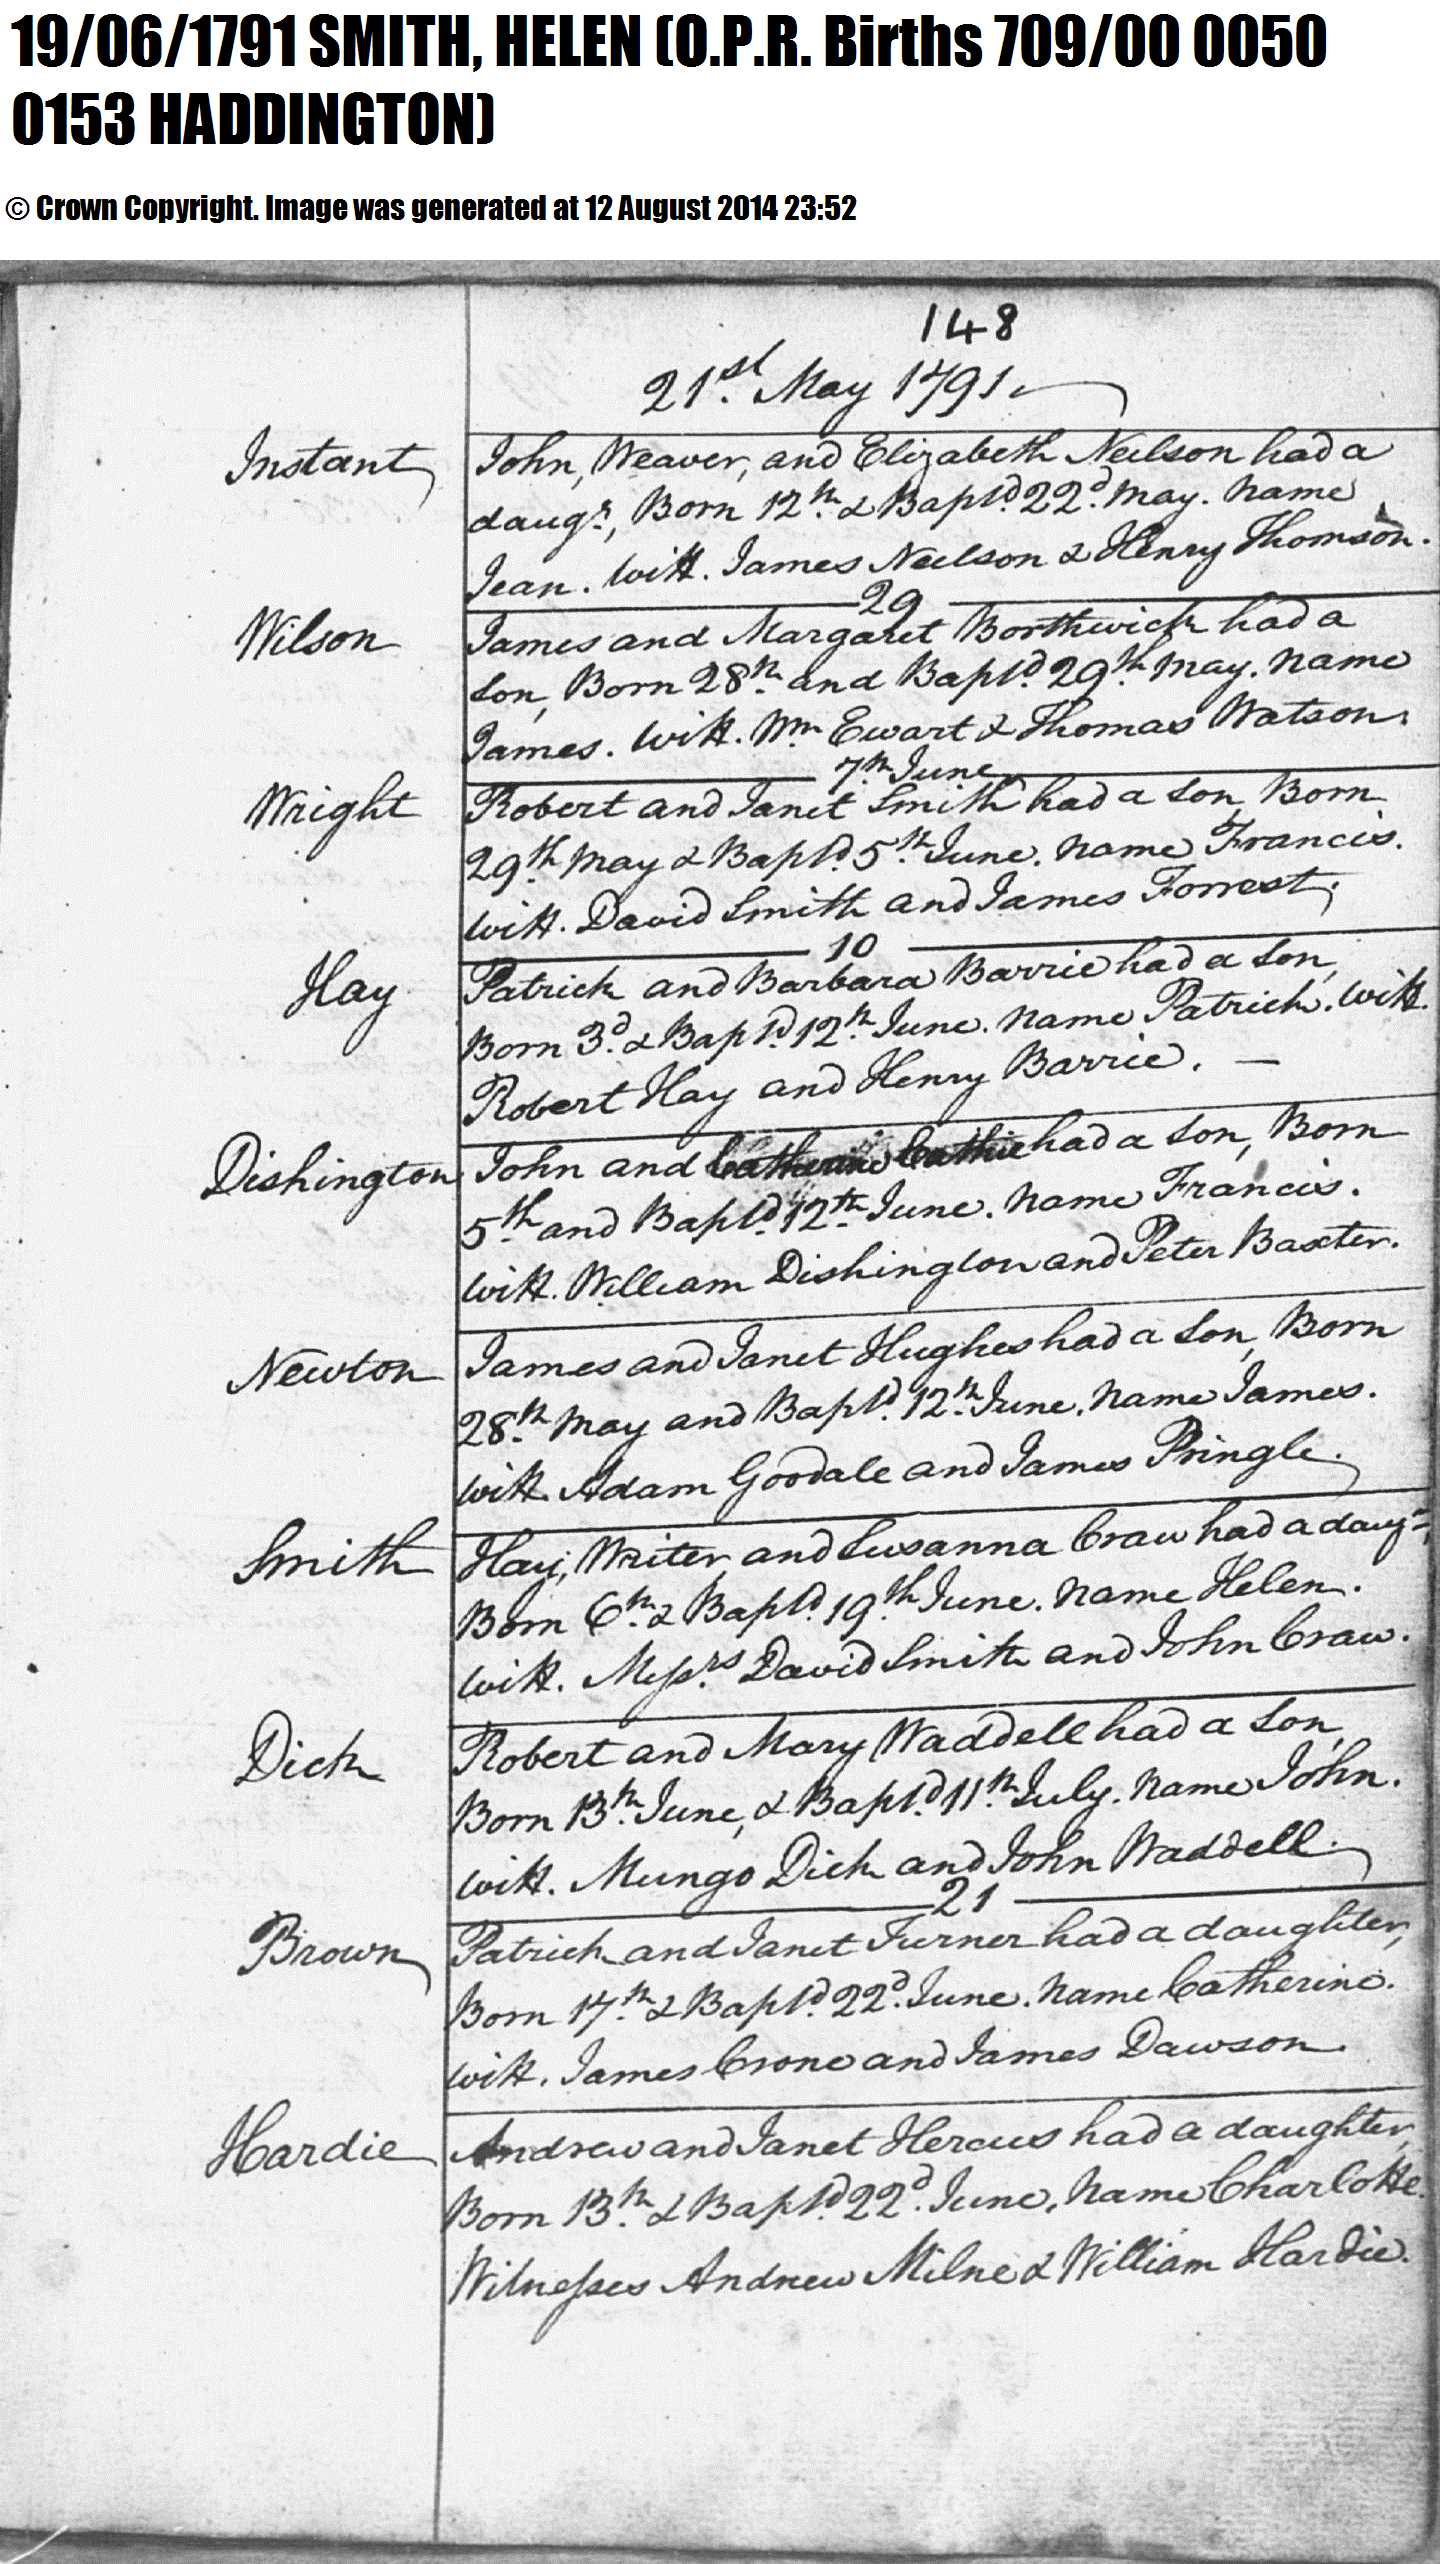 19/06/1791 SMITH, HELEN (O.P.R. Births 709/00 0050
0153 HADDINGTON)
© Crown Copyright. Image was generated at 12 August 2014 23:52
148
21st. May 1791
Instant John, Weaver, and Elizabeth Neilson had a
daugr, Born 12th. & Baptd. 22d. May. Name
Jean. Witt. James Neilson & Henry Thomson.
29
Wilson James and Margaret Borthwick had a
Son, Born 28th. and Baptd. 29th. May. Name
James. Witt. Wm Ewart & Thomas Watson.
7th June
Wright Robert and Janet Smith had a Son, Born
29th. May & Baptd. 5th. June. Name Francis.
Witt. David Smith and James Forrest.
10
Hay Patrick and Barbara Barrie had a Son,
Born 3d. & Baptd. 12th. June. Name Patrick. Witt.
Robert Hay and Henry Barrie. —
Dishington John and Catherine Cathie had a Son, Born
5th. and Baptd. 12th. June. Name Francis.
Witt. William Dishington and Peter Baxter.
Newton James and Janet Hughes had a Son, Born
28th. May and Baptd. 12th. June. Name James.
Witt. Adam Goodale and James Pringle.
Smith Hay, Writer, and Susanna Craw had a daugr,
Born 6th. & Baptd. 19th June. Name Helen.
Witt. Messrs. David Smith and John Craw.
Dick Robert and Mary Waddell had a Son,
Born 13th. June, & Baptd. 11th. July. Name John.
Witt. Mungo Dick and John Waddell.
21
Brown Patrick and Janet Turner had a daughter,
Born 17th. & Baptd. 22d. June. Name Catherine.
Witt. James Crone and James Dawson.
Hardie Andrew and Janet Hercus had a daughter,
Born 13th. & Baptd. 22d. June. Name Charlotte.
Witnesses Andrew Milne & William Hardie.